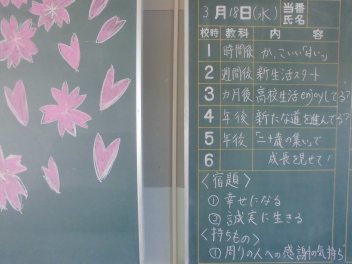 3月18日(水) 当番氏名
校時 教科 内容
1 時間後 かっこいい「はい」
2 週間後 新生活スタート
3 カ月後 高校生活enjoyしてる?
4 年後 新たな道を進んでる?
5 年後 「二十歳の集い」で
6 成長を見せて!
<宿題>
① 幸せになる
② 誠実に生きる
<持ちもの>
① 周りの人への感謝の気持ち